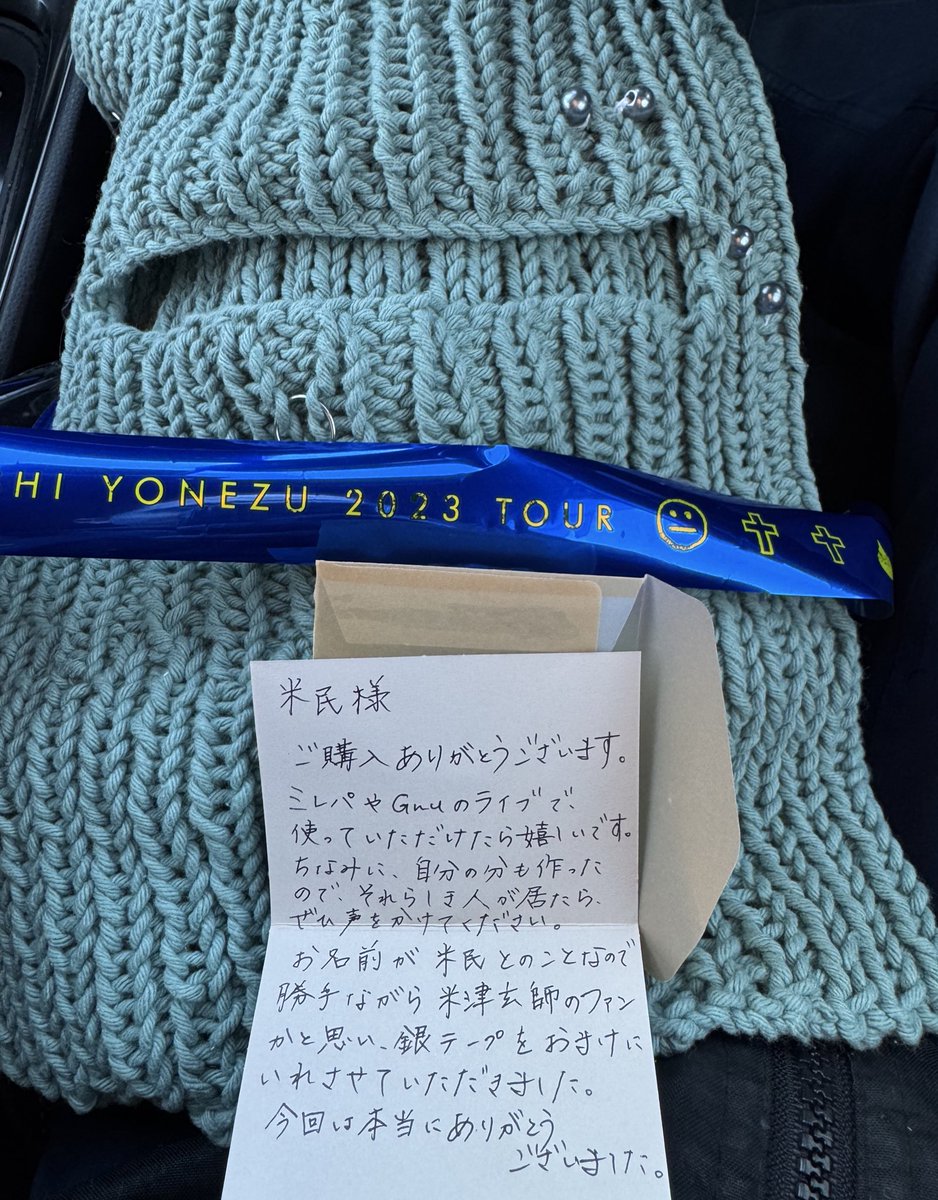 HI YONEZU 2023 TOUR
米民様
ご購入ありがとうございます。
ミレパやGnuのライブで、
使っていただけたら嬉しいです。
ちなみに、自分の分も作った
ので、それらしき人が居たら、
ぜひ声をかけてください。
お名前が米民とのことなので
勝手ながら米津玄師のファン
かと思い、銀テープをおまけに
いれさせていただきました。
今回は本当にありがとう
ございました。